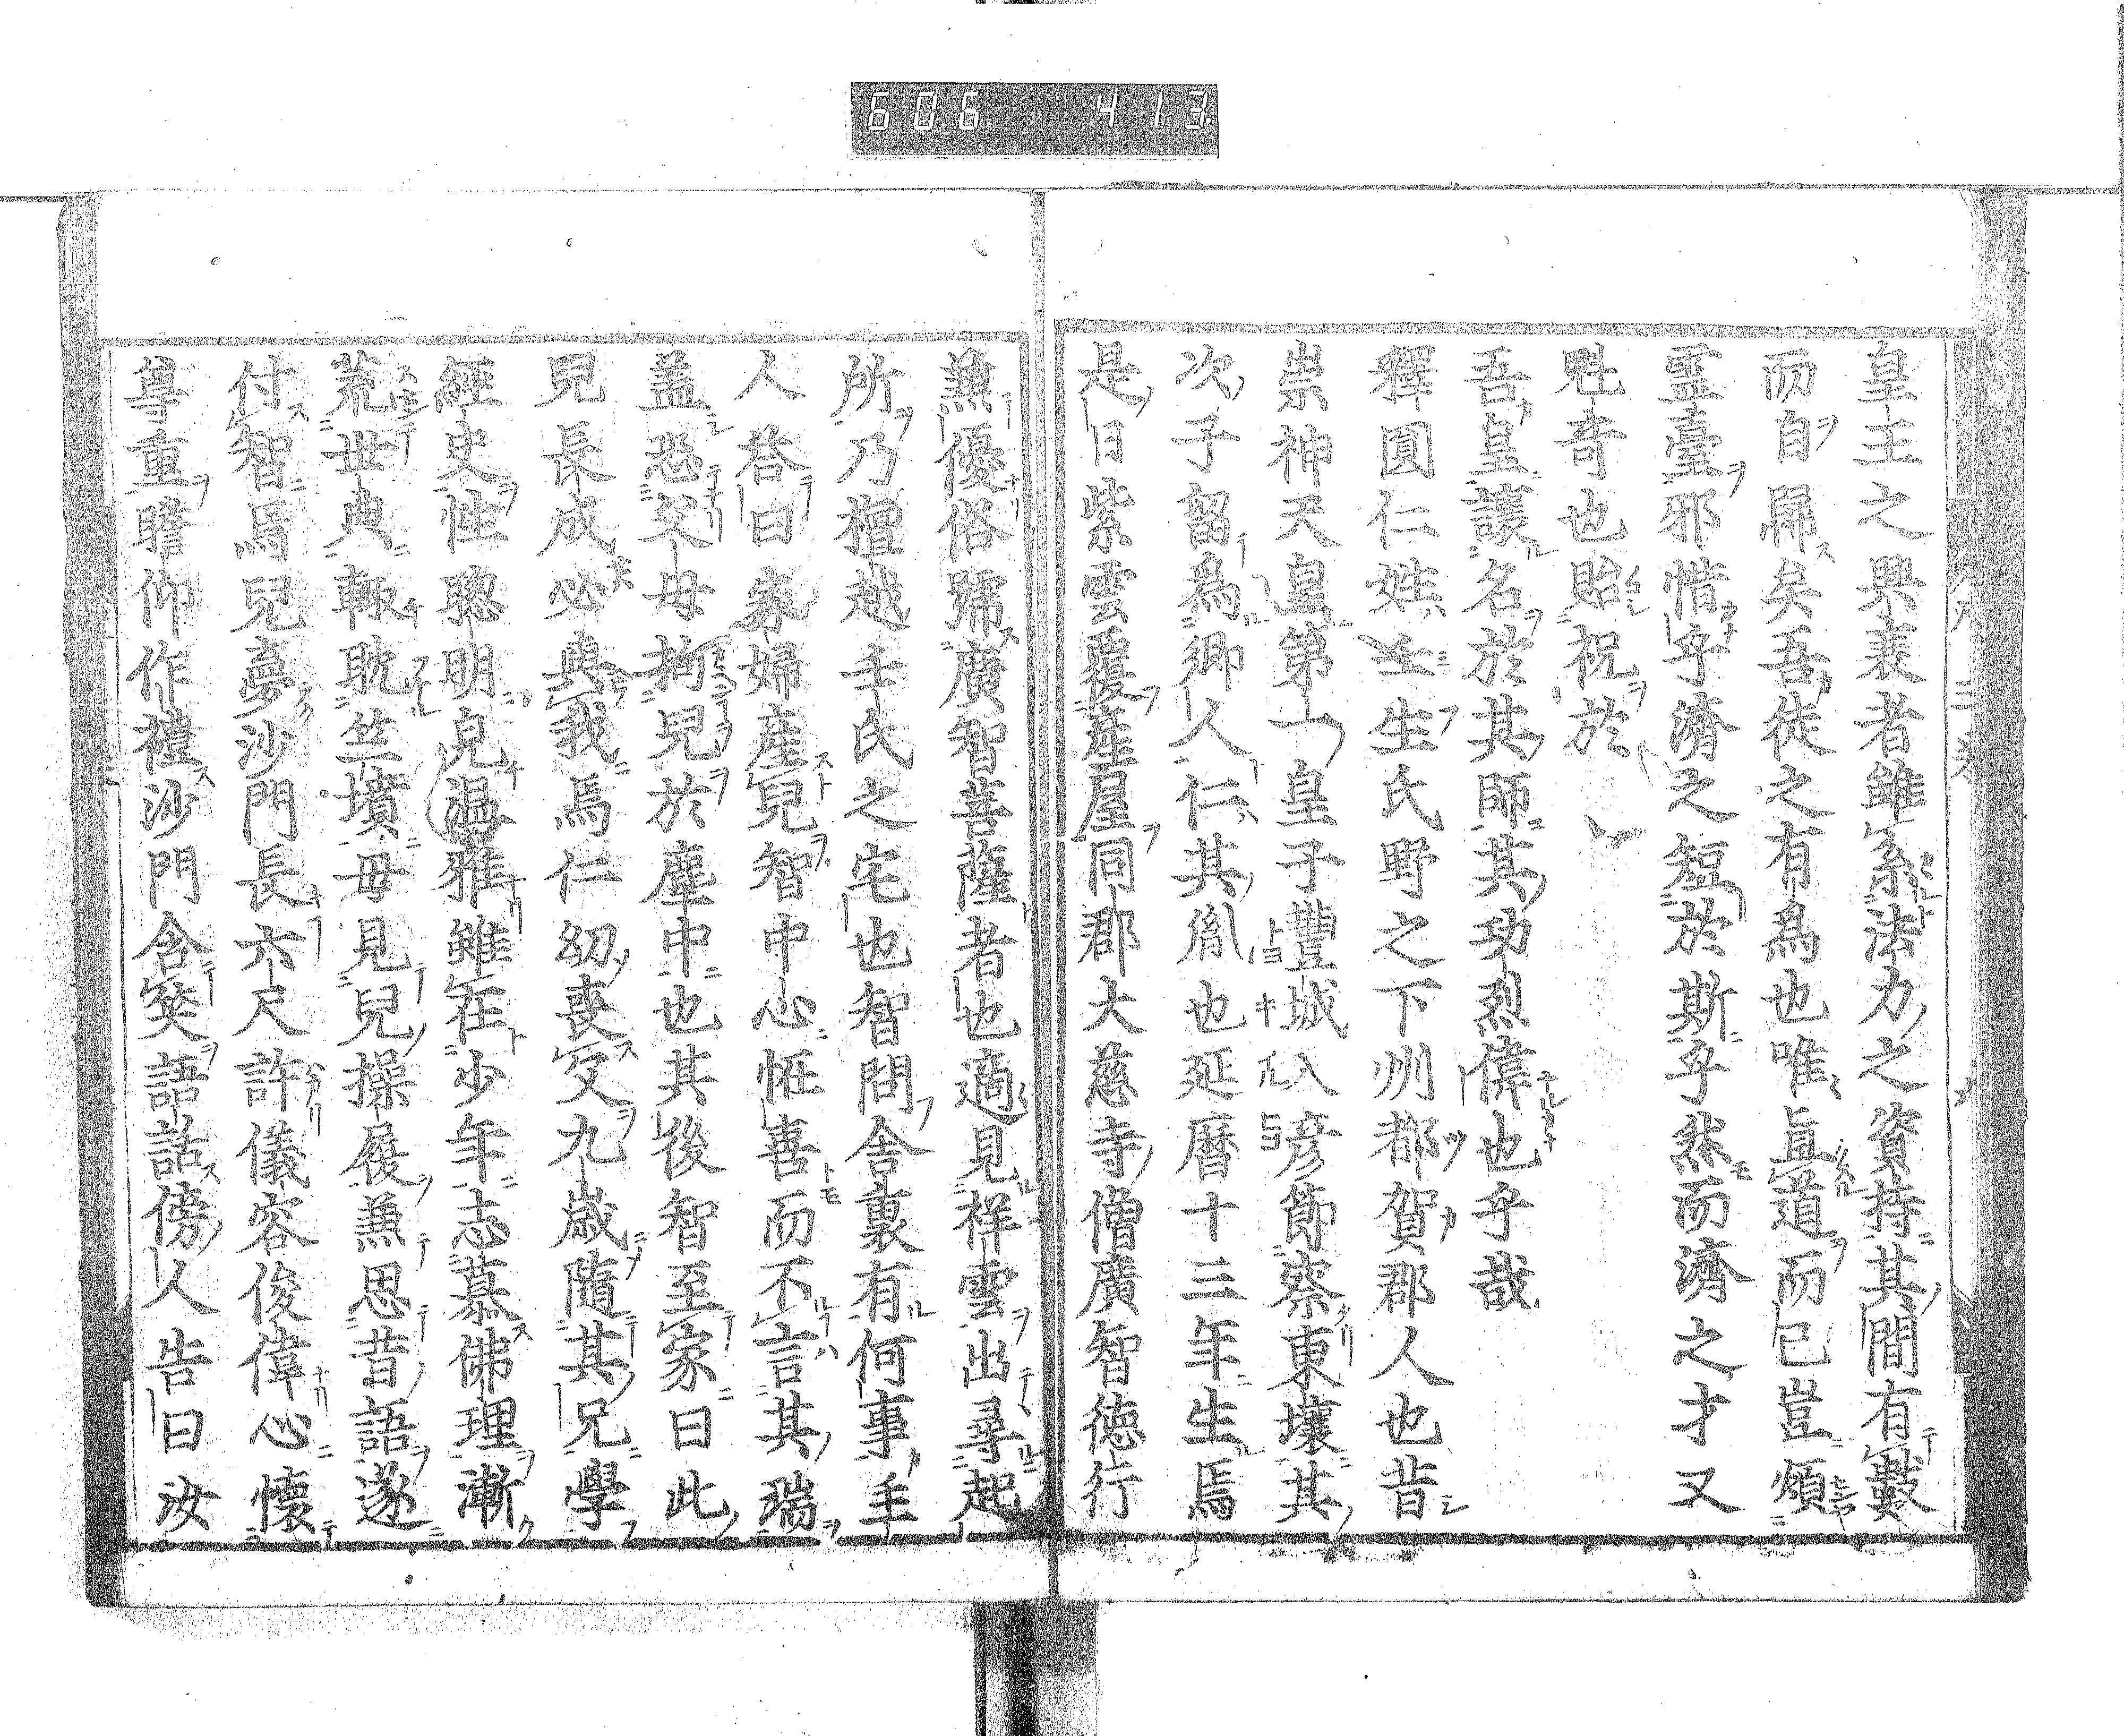 606 413
皇王之興衰者雖系法力之資持其間有數
而自歸矣吾徒之有爲也唯直道而已豈煩
霊臺邪惜乎濟之短於斯乎然而濟之才又
魁奇也貽祝於
吾皇讓名於其師其功烈偉也乎哉
釋圓仁姓壬生氏野之下州都賀郡人也昔
崇神天皇第一皇子豐城入彦節察東壤其
次子留爲郷人仁其胤也延暦十三年生焉
是日紫雲覆産屋同郡大慈寺僧廣智德行
兼優俗號廣智菩薩者也適見祥雲出尋起
所乃檀越壬氏之宅也智問舍裏有何事主
人荅曰家婦産兒智中心恠喜而不言其瑞
盖恐父母拘兒於塵中也其後智至家曰此
兒長成必與我焉仁幼喪父九歳隨其兄學
經史性聰明皃温雅雖在少年志慕佛理漸
荒世典輙耽竺墳母見兒操履兼思昔語遂
付智焉兒夢沙門長六尺許儀容俊偉心懷
尊重瞻仰作禮沙門含笑語話傍人告曰汝